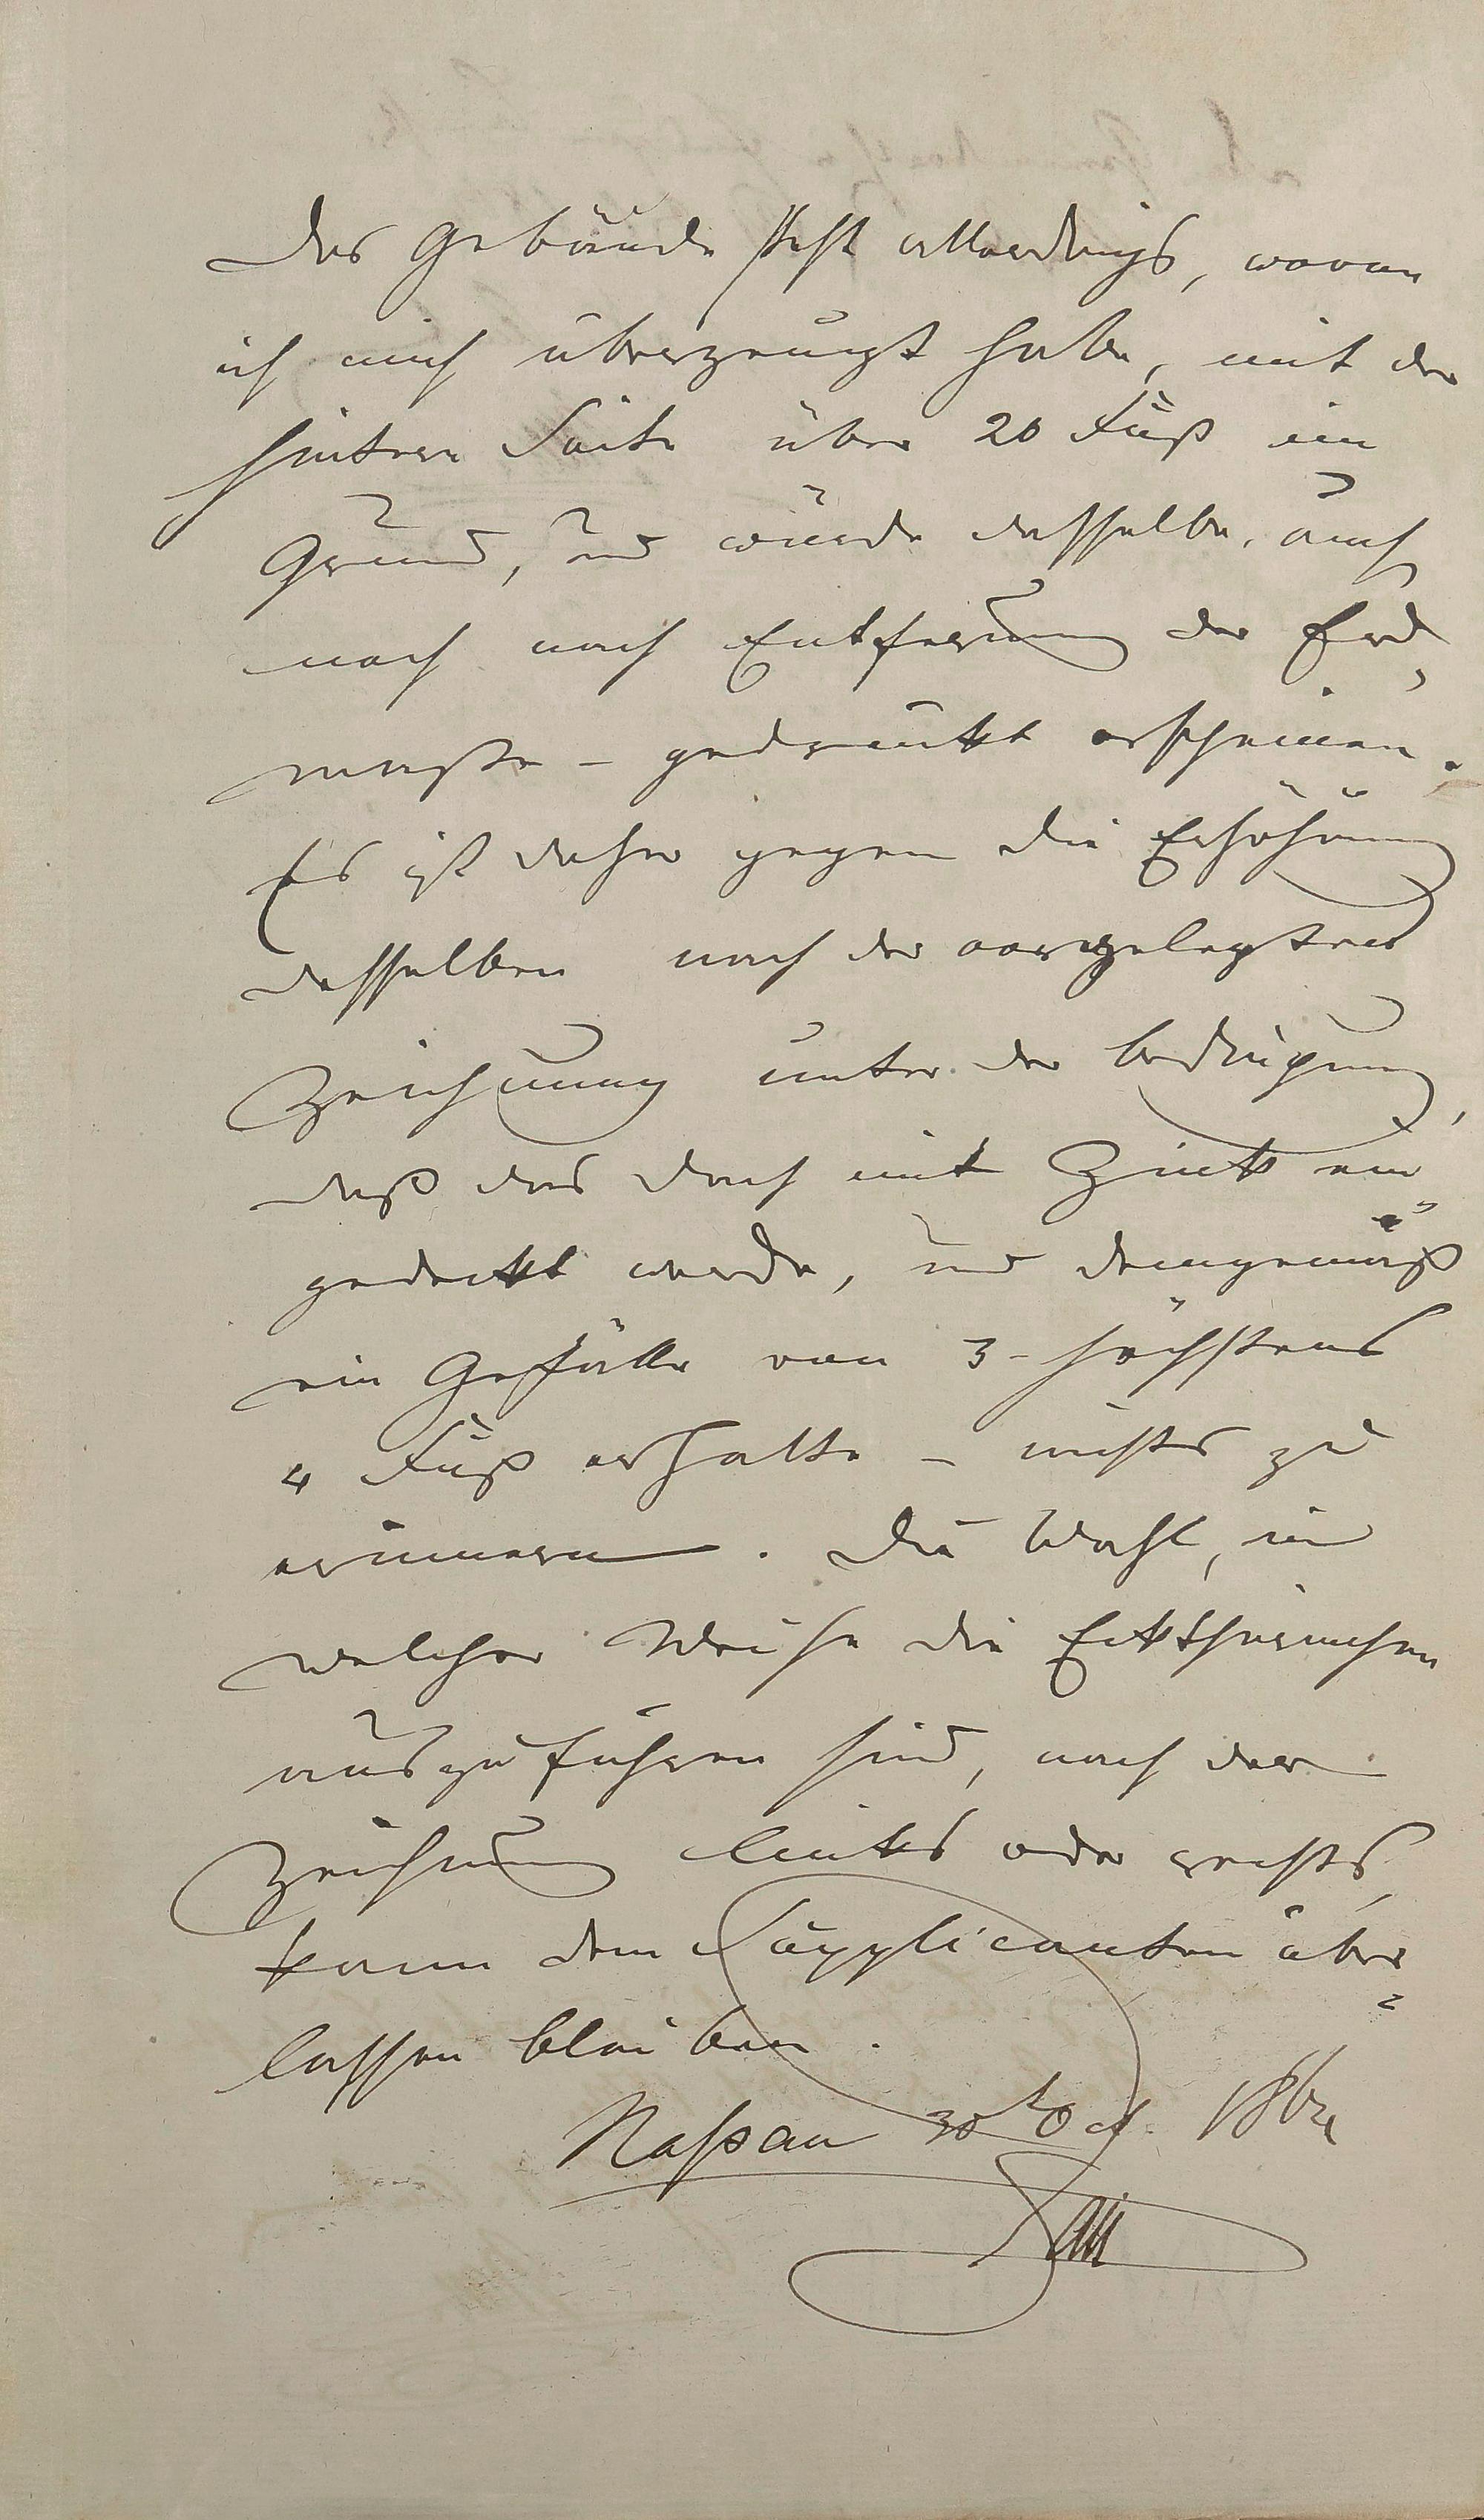 Das Gebäude steht allerdings, wovon
ich mich überzeugt habe, mit der
hintern Seite über 20 Fuß im
Grund, und würde dasselbe, auch
noch nach Entfernung der Erd-
masse - gedrückt erscheinen.
Es ist daher gegen die Erhöhung
desselben nach der vorgelegten
Zeichnung unter der Bedingung,
daß das Dach mit Zink ein
gedeckt werde, und demgemäß
ein Gefälle von 3 - höchstens
4 Fuß erhalte - nichts zu
erinnern. Die Wahl, in
welcher Weise die
auszuführen sind, nach der
Zeichnung links oder rechts,
kann dem Supplicanten über-
lassen bleiben.
Nassau 30 Oct.